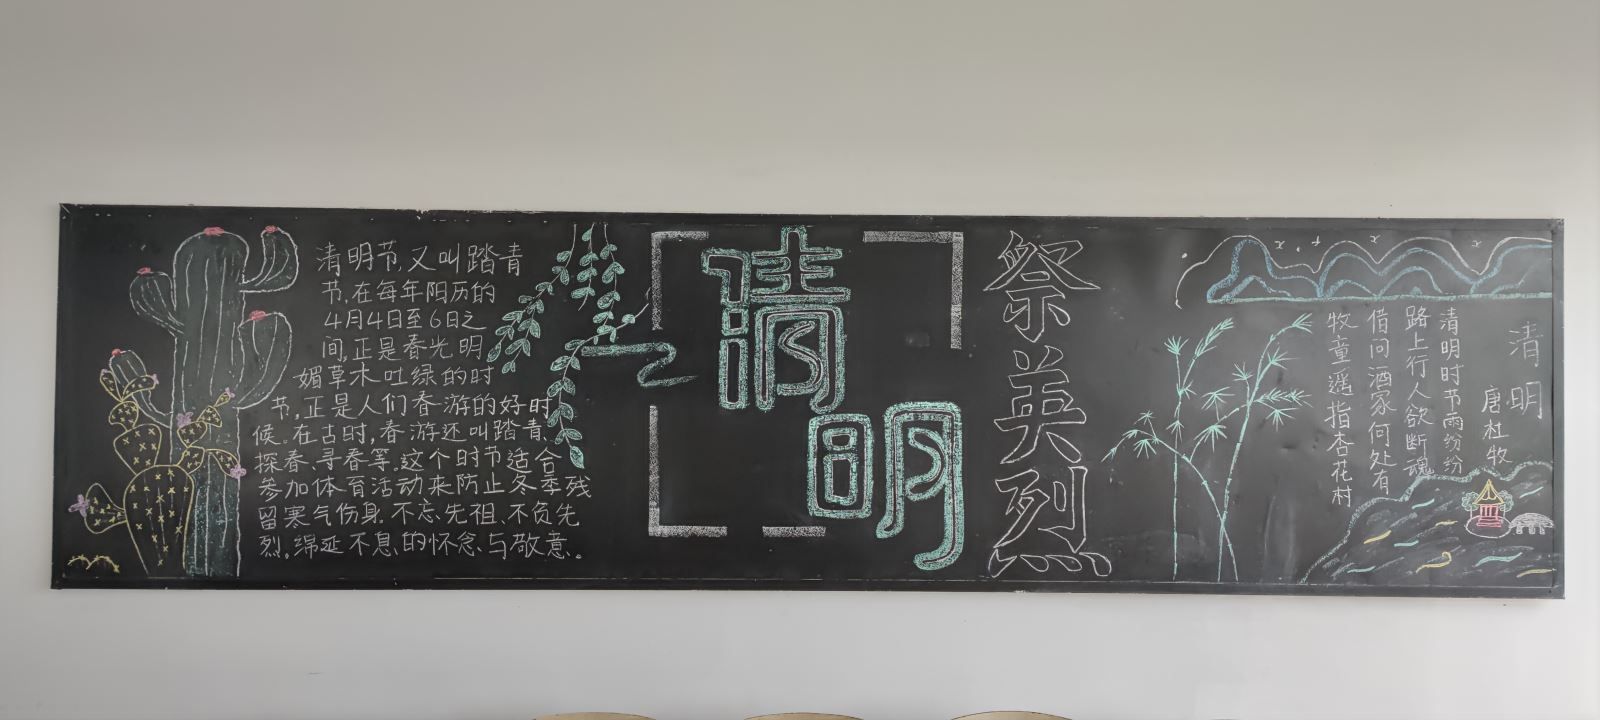 清明节,又叫踏青
节,在每年阳历的
4月4日至6日之
间,正是春光明
媚草木吐绿的时
节,正是人们春游的好时
候。在古时,春游还叫踏青、
探春、寻春等。这个时节适合
参加体育活动来防止冬季残
留寒气伤身。不忘先祖、不负先
烈。绵延不息的怀念与敬意。
清明
祭英烈
清明
唐杜牧
清明时节雨纷纷
路上行人欲断魂
借问酒家何处有
牧童遥指杏花村